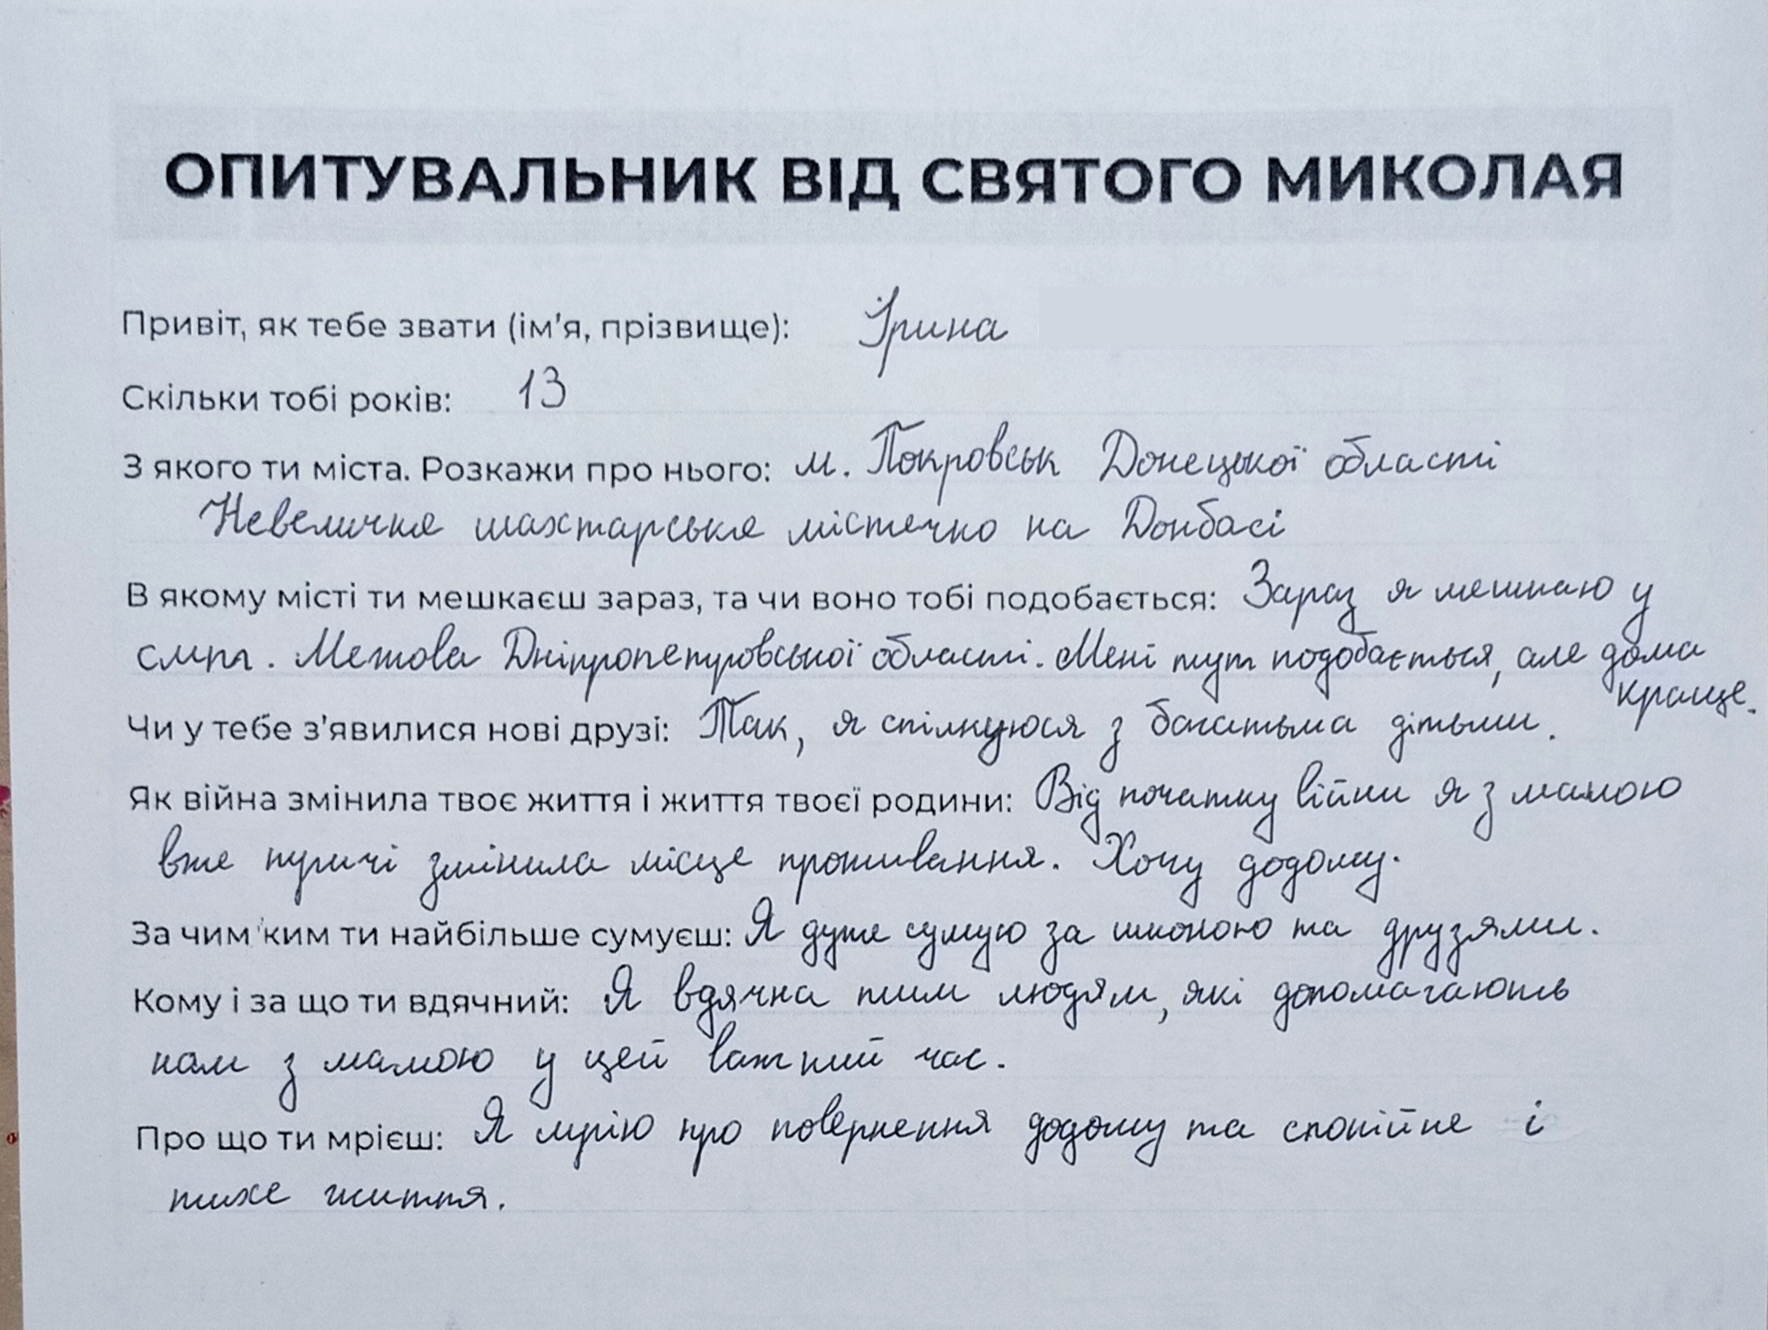 ОПИТУВАЛЬНИК ВІД СВЯТОГО МИКОЛАЯ
Привіт, як тебе звати (ім'я, прізвище): Ірина
Скільки тобі років: 13
З якого ти міста. Розкажи про нього: м. Покровськ Донецької області
Невеличке шахтарське містечко на Донбасі
В якому місті ти мешкаєш зараз, та чи воно тобі подобається: Зараз я мешкаю у
смт. Межова Дніпропетровської області. Мені тут подобається, але дома
краще.
Чи у тебе з'явилися нові друзі: Так, я спілкуюся з багатьма дітьми.
Як війна змінила твоє життя і життя твоєї родини: Від початку війни я з мамою
вже тричі змінила місце проживання. Хочу додому.
За чим/ким ти найбільше сумуєш: Я дуже сумую за школою та друзями.
Кому і за що ти вдячний: Я вдячна тим людям, які допомагають
нам з мамою у цей важкий час.
Про що ти мрієш: Я мрію про повернення додому та спокійне і
тихе життя.